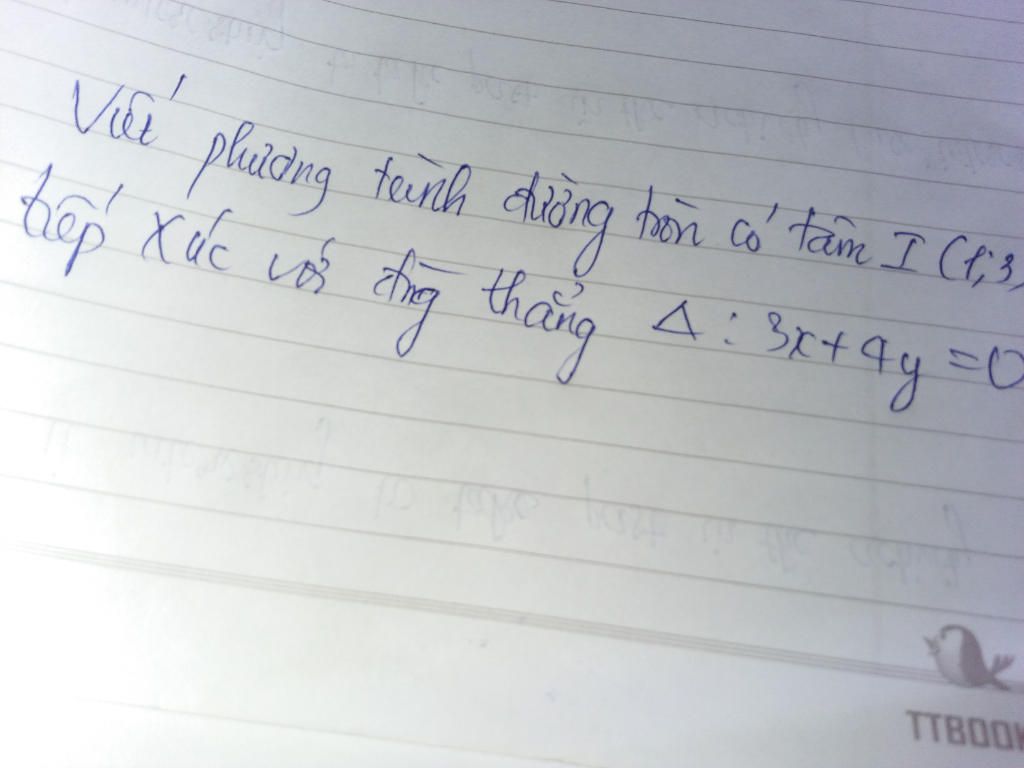 Viết phương trình đường tròn có tâm I (1; 3
tiếp xúc với đng thẳng Δ : 3x + 4y = 0
TTBOOK